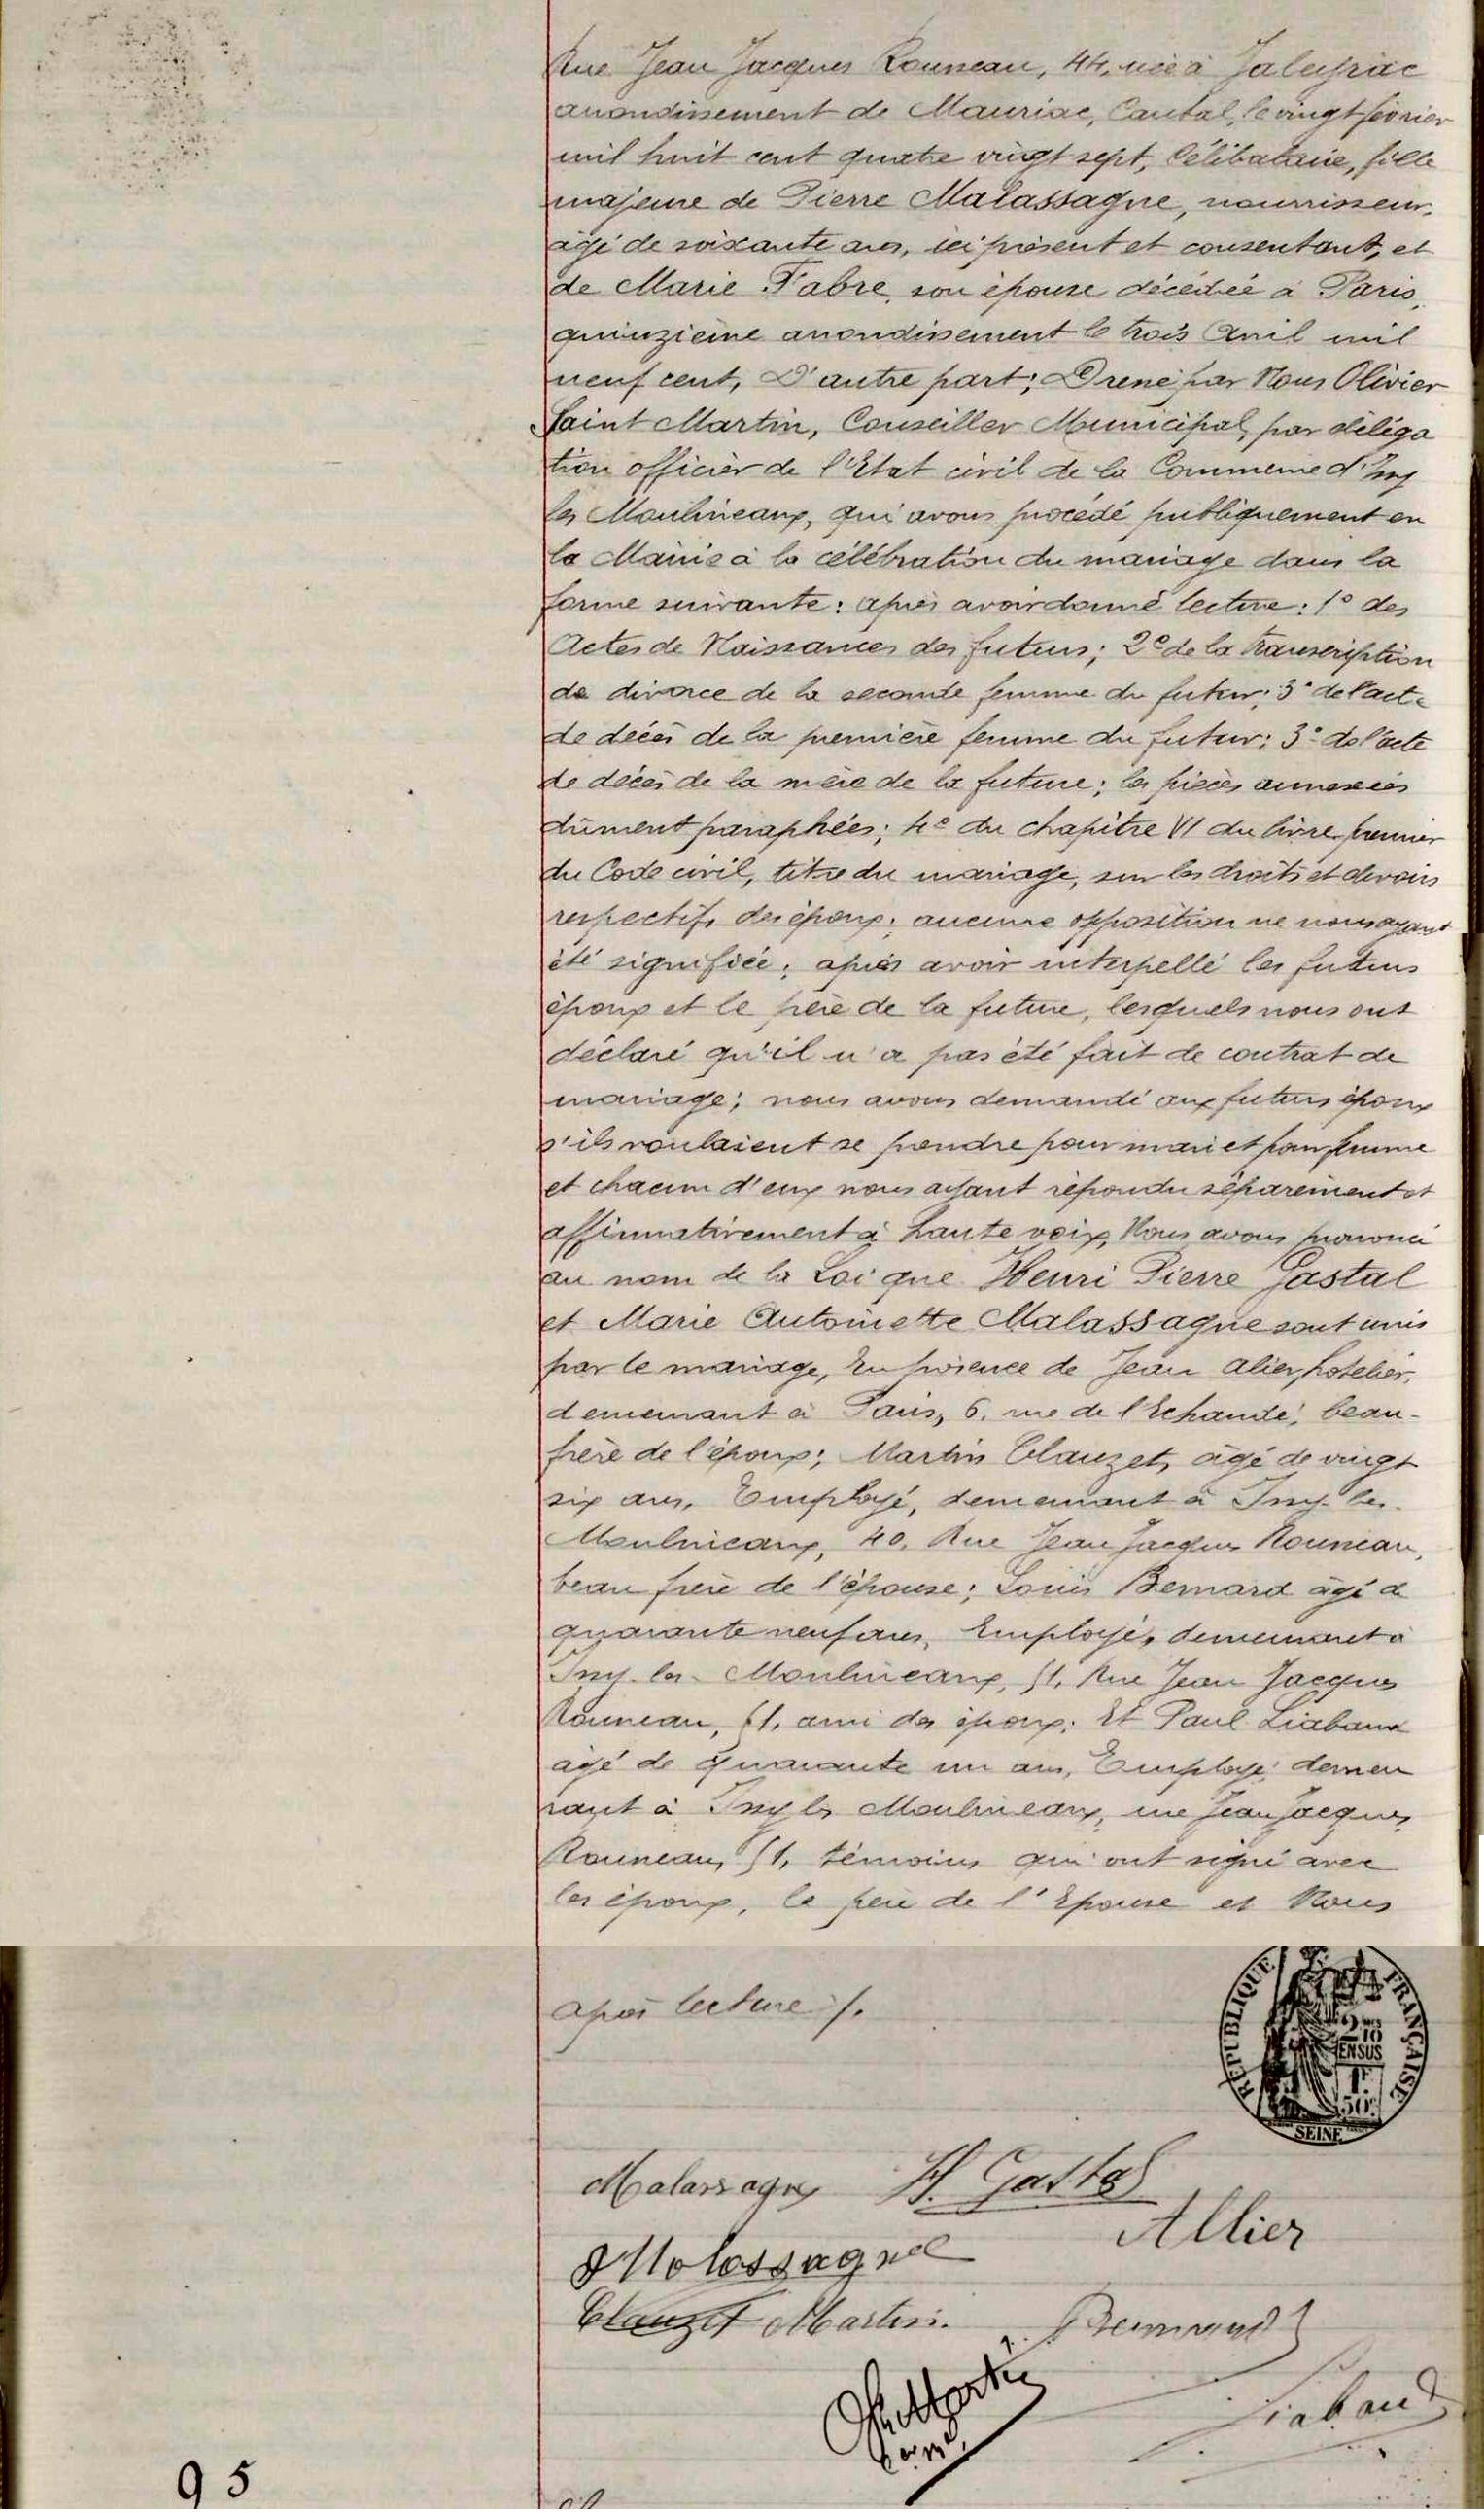 Rue Jean Jacques Rousseau, 44, née à Jaleyrac
arrondissement de Mauriac, Cantal, le vingt février
mil huit cent quatre vingt sept, Célibataire, fille
majeure de Pierre Malassagne, nourrisseur,
âgé de soixante ans, ici présent et consentant, et
de Marie Fabre, son épouse décédée à Paris,
quinzième arrondissement le trois Avril mil
neuf cent, D'autre part; Dressé par Nous Olivier
Saint Martin, Conseiller Municipal, par déléga
tion officier de l'Etat civil de la Commune d'Issy
les Moulineaux, qui avons procédé publiquement en
la Mairie à la célébration du mariage dans la
forme suivante: après avoir donné lecture: 1° des
Actes de Naissances des futurs; 2° de la transcription
de divorce de la seconde femme du futur; 3° de l'acte
de décès de la première femme du futur; 3° de l'acte
de décès de la mère de la future; les pièces annexées
dûment paraphées; 4° du chapitre VI du livre premier
du Code civil, titre du mariage, sur les droits et devoirs
respectifs des époux; aucune opposition ne nous ayant
été signifiée; après avoir interpellé les futurs
époux et le père de la future, lesquels nous ont
déclaré qu'il n'a pas été fait de contrat de
mariage; nous avons demandé aux futurs époux
s'ils voulaient se prendre pour mari et pour femme
et chacun d'eux nous ayant répondu séparément et
affirmativement à haute voix, Nous avons prononcé
au nom de la Loi que Henri Pierre Gastal
et Marie Antoinette Malassagne sont unis
par le mariage, En présence de Jean Alier, hotelier,
demeurant à Paris, 6, rue de l'Echaudé, beau-
frère de l'époux; Martin Clauzet, âgé de vingt
six ans, Employé, demeurant à Issy-les-
Moulineaux, 40, Rue Jean Jacques Rousseau,
beau frère de l'épouse; Louis Bernard âgé de
quarante neuf ans, Employé, demeurant à
Issy-les-Moulineaux, 51, Rue Jean Jacques
Rousseau, 51, ami des époux; Et Paul Liabaud
âgé de quarante un ans, Employé, demeu
rant à Issy les Moulineaux, rue Jean Jacques
Rousseau, 51, témoins qui ont signé avec
les époux, le père de l'Epouse et Nous
après lecture ./.
REPUBLIQUE FRANÇAISE
SEINE
Malassagne H. Gastal
Allier
Malassagne
Clauzet Martin. Bernard
Liabaud
95